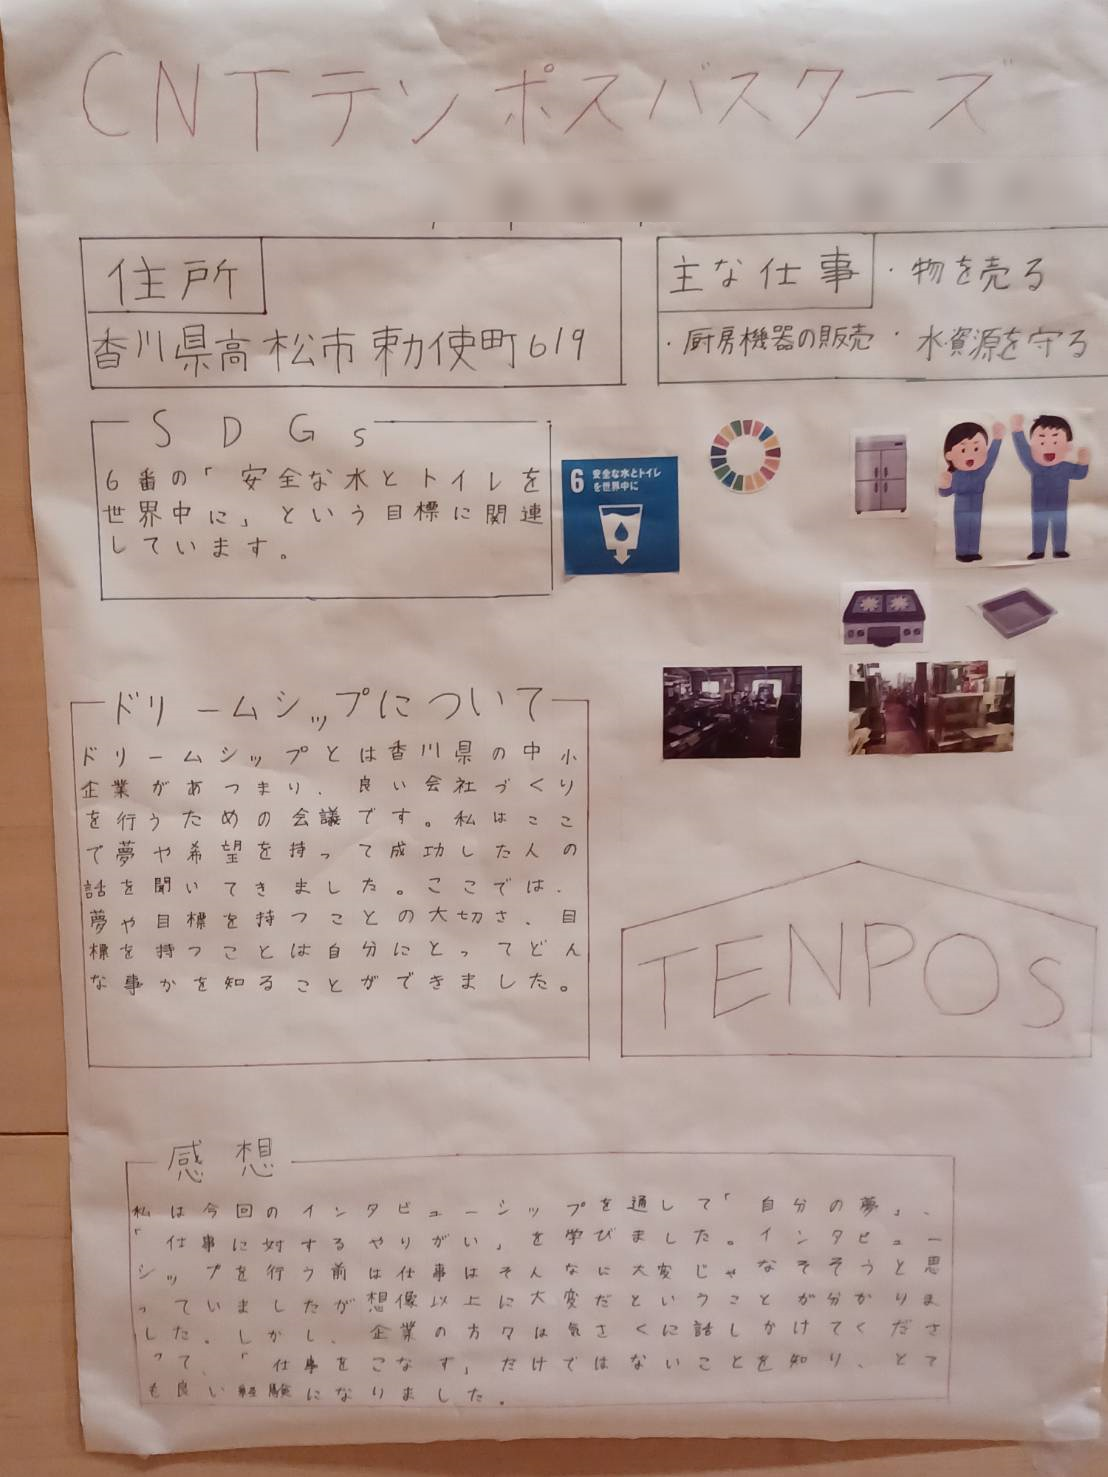 CNTテンポスバスターズ
住所
香川県高松市勅使町619
主な仕事
・物を売る
・厨房機器の販売
・水資源を守る
SDGs
6番の「安全な水とトイレを
世界中に」という目標に関連
しています。
6 安全な水とトイレ
を世界中に
ドリームシップについて
ドリームシップとは香川県の中小
企業があつまり、良い会社づくり
を行うための会議です。私はここ
で夢や希望を持って成功した人の
話を聞いてきました。ここでは、
夢や目標を持つことの大切さ、目
標を持つことは自分にとってどん
な事かを知ることができました。
TENPOS
感想
私は今回のインタビューシップを通して「自分の夢」、
「仕事に対するやりがい」を学びました。インタビュー
シップを行う前は仕事はそんなに大変じゃなそそうと思
っていましたが想像以上に大変だということが分かりま
した。しかし、企業の方々は気さくに話しかけてくださ
って、「仕事をこなす」だけではないことを知り、とて
も良い経験になりました。